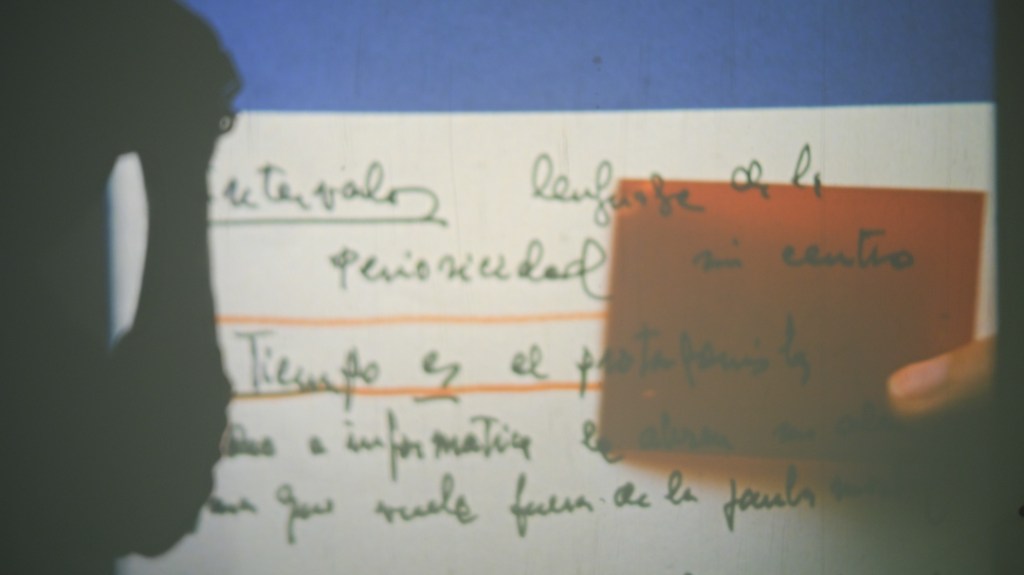 intervalos lenguaje de la
periodicidad sin centro
Tiempo es el protagonista
informatica
que vuela fuera de la jaula